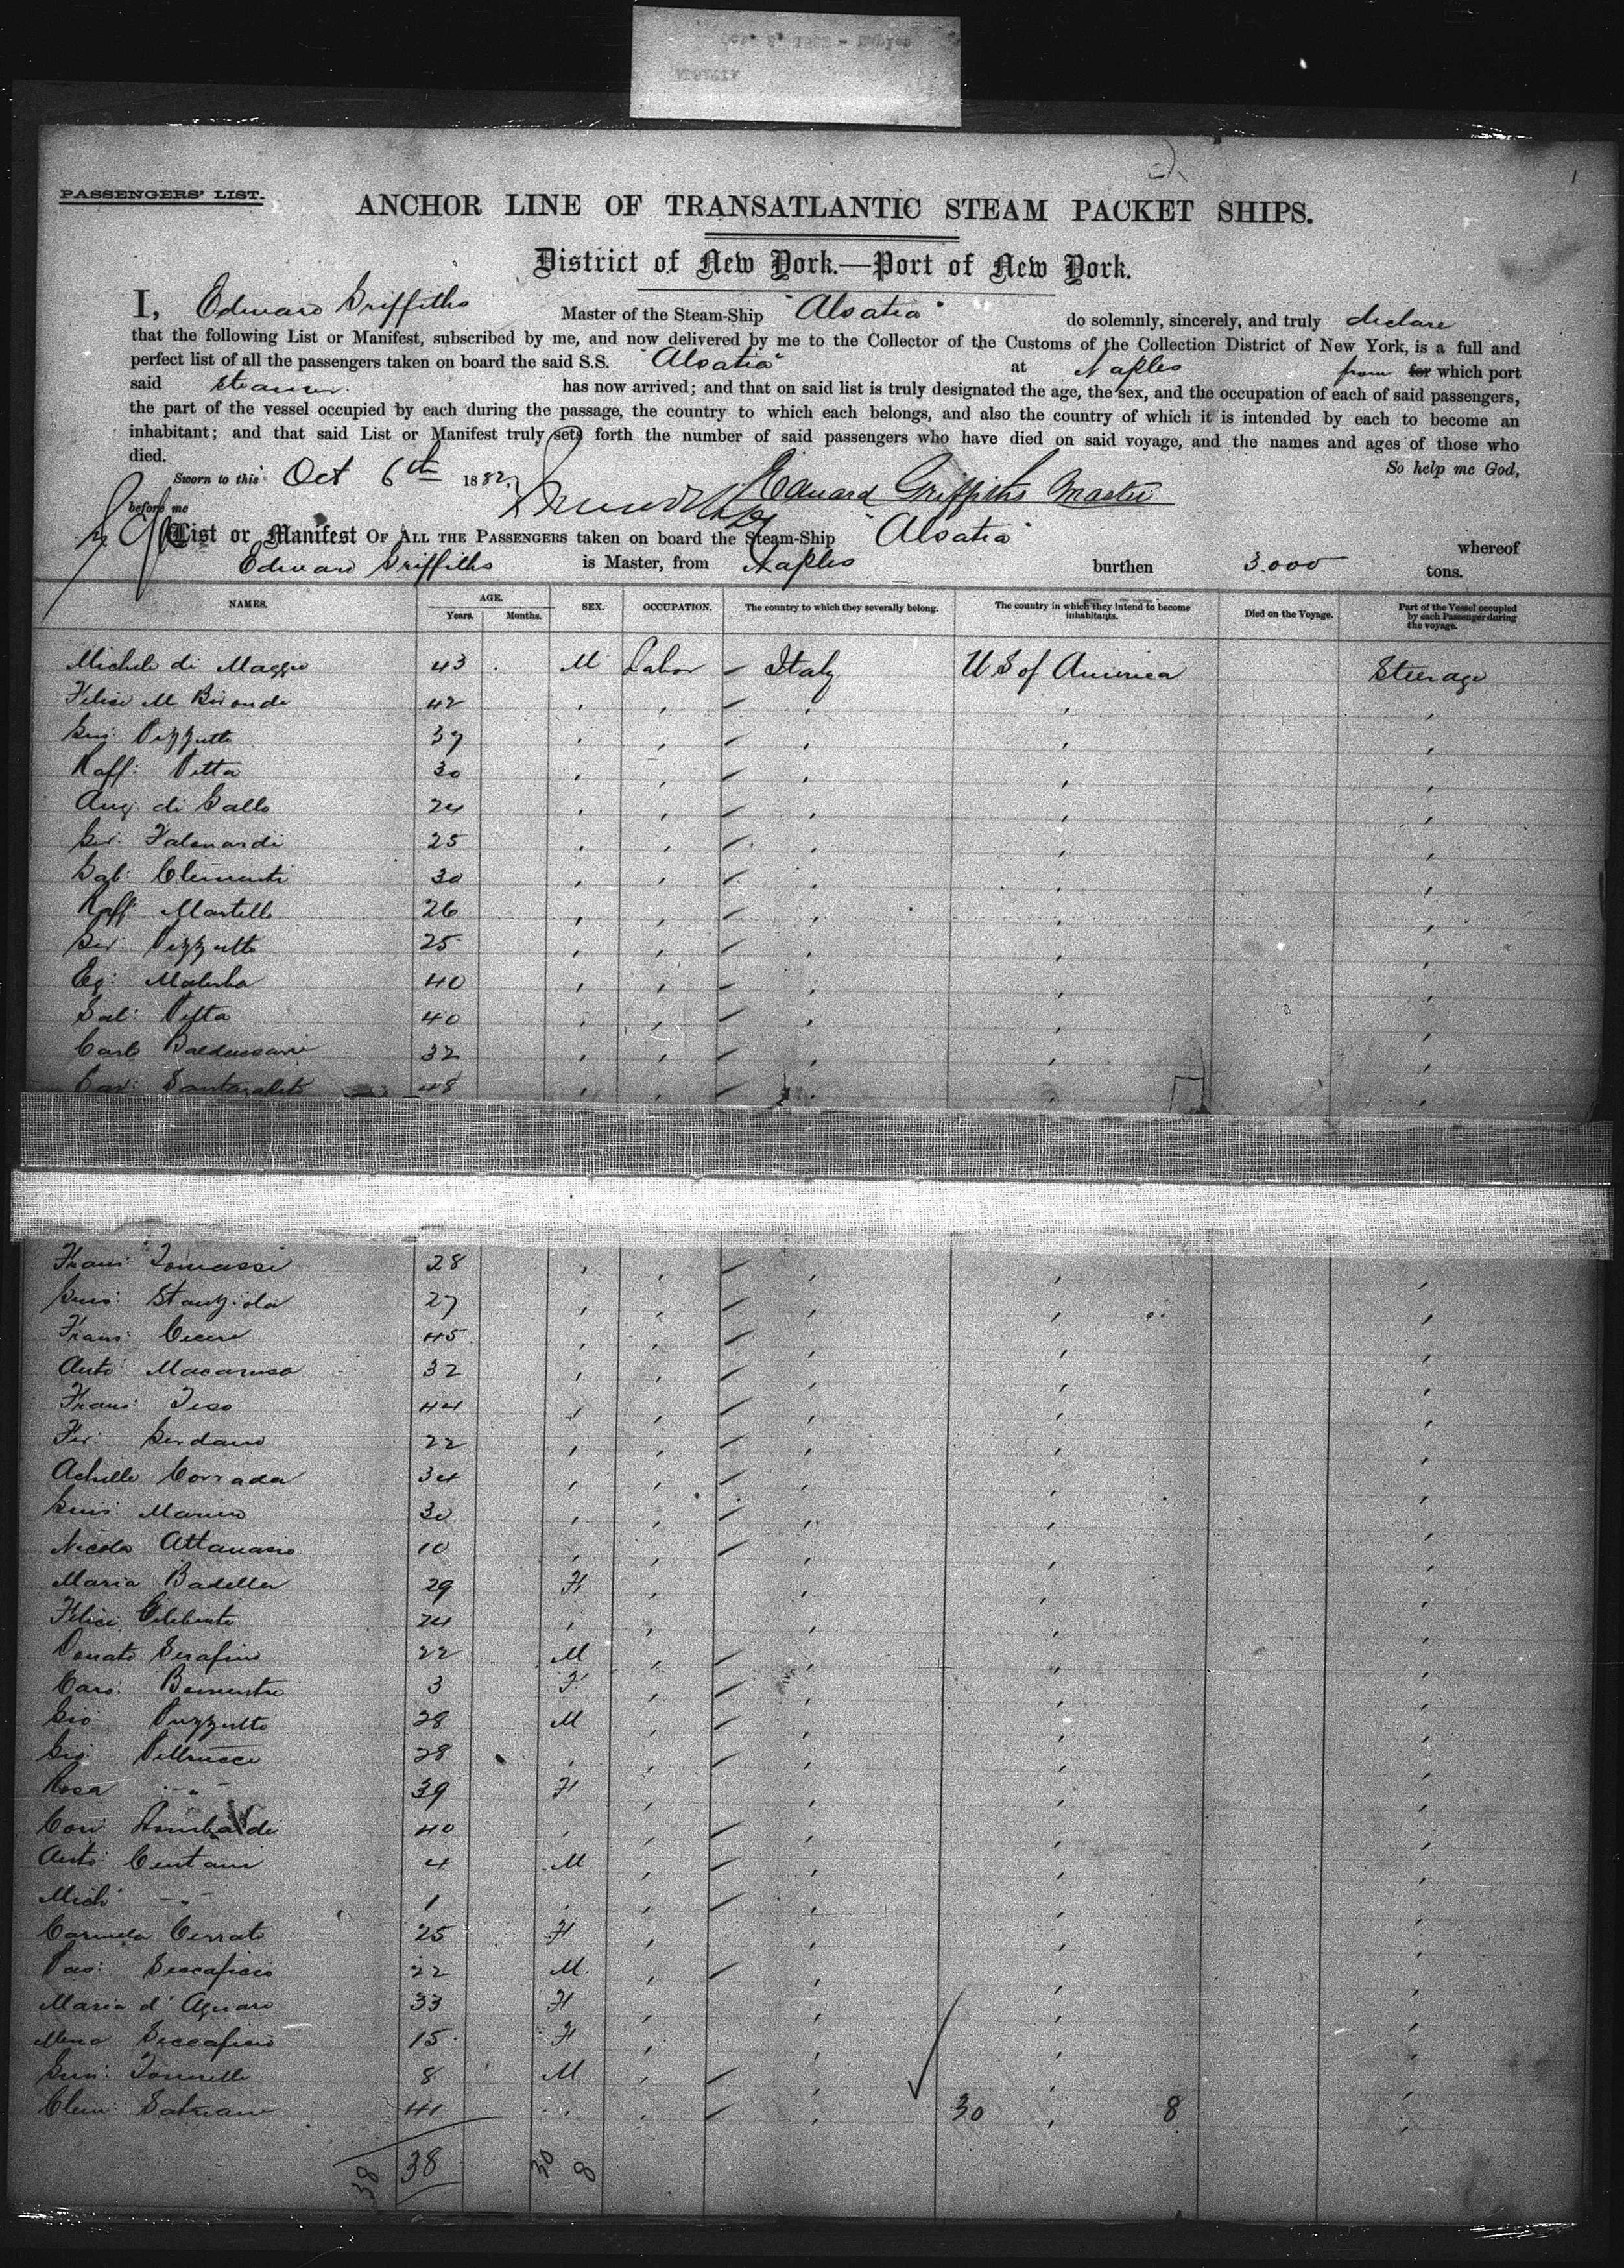 PASSENGERS' LIST.
ANCHOR LINE OF TRANSATLANTIC STEAM PACKET SHIPS.
District of New York.—Port of New York.
I, Edward Griffiths Master of the Steam-Ship "Alsatia" do solemnly, sincerely, and truly declare
that the following List or Manifest, subscribed by me, and now delivered by me to the Collector of the Customs of the Collection District of New York, is a full and
perfect list of all the passengers taken on board the said S.S. "Alsatia" at Naples from for which port
said steamer has now arrived; and that on said list is truly designated the age, the sex, and the occupation of each of said passengers,
the part of the vessel occupied by each during the passage, the country to which each belongs, and also the country of which it is intended by each to become an
inhabitant; and that said List or Manifest truly sets forth the number of said passengers who have died on said voyage, and the names and ages of those who
died. So help me God,
Sworn to this Oct 6th 1882, Edward Griffiths Master
before me
List or Manifest OF ALL THE PASSENGERS taken on board the Steam-Ship "Alsatia" whereof
Edward Griffiths is Master, from Naples burthen 3.000 tons.
NAMES. AGE. Years. Months. SEX. OCCUPATION. The country to which they severally belong. The country in which they intend to become inhabitants. Died on the Voyage. Part of the Vessel occupied by each Passenger during the voyage.
Michele di Maggio 43 M Labor Italy U S of America Steerage
Felice M. Biondi 42
Pizzutti 39
Raff: Petta 30
Ang. di Gallo 24
25
Gab: Clementi 30
Raff: Martelli 26
Ger. Pizzutto 25
40
Sal: Petta 40
Carlo 32
48
Frans: Tomassi 28
Stanziola 27
Frans: 45
Anto 32
Frans: Teso 44
Fer: Giordano 22
Achille Corrada 34
Marino 30
Nicola Attanasio 10
Maria Badella 29 F
Felice 24
Donato Serafino 22 M
Caro: 3 F
Gio: Puzzutto 28 M
Gio: Pettrucci 28
Rosa -"- 39 F
Con: Lombardi 40
Anto: Centani 4 M
Mich: -"- 1
Carmela Cerrato 25 F
Pas: 22 M.
Maria d'Aquaro 33 F
15 F
8 M
Clem: 41 30 8
38 38 30 8